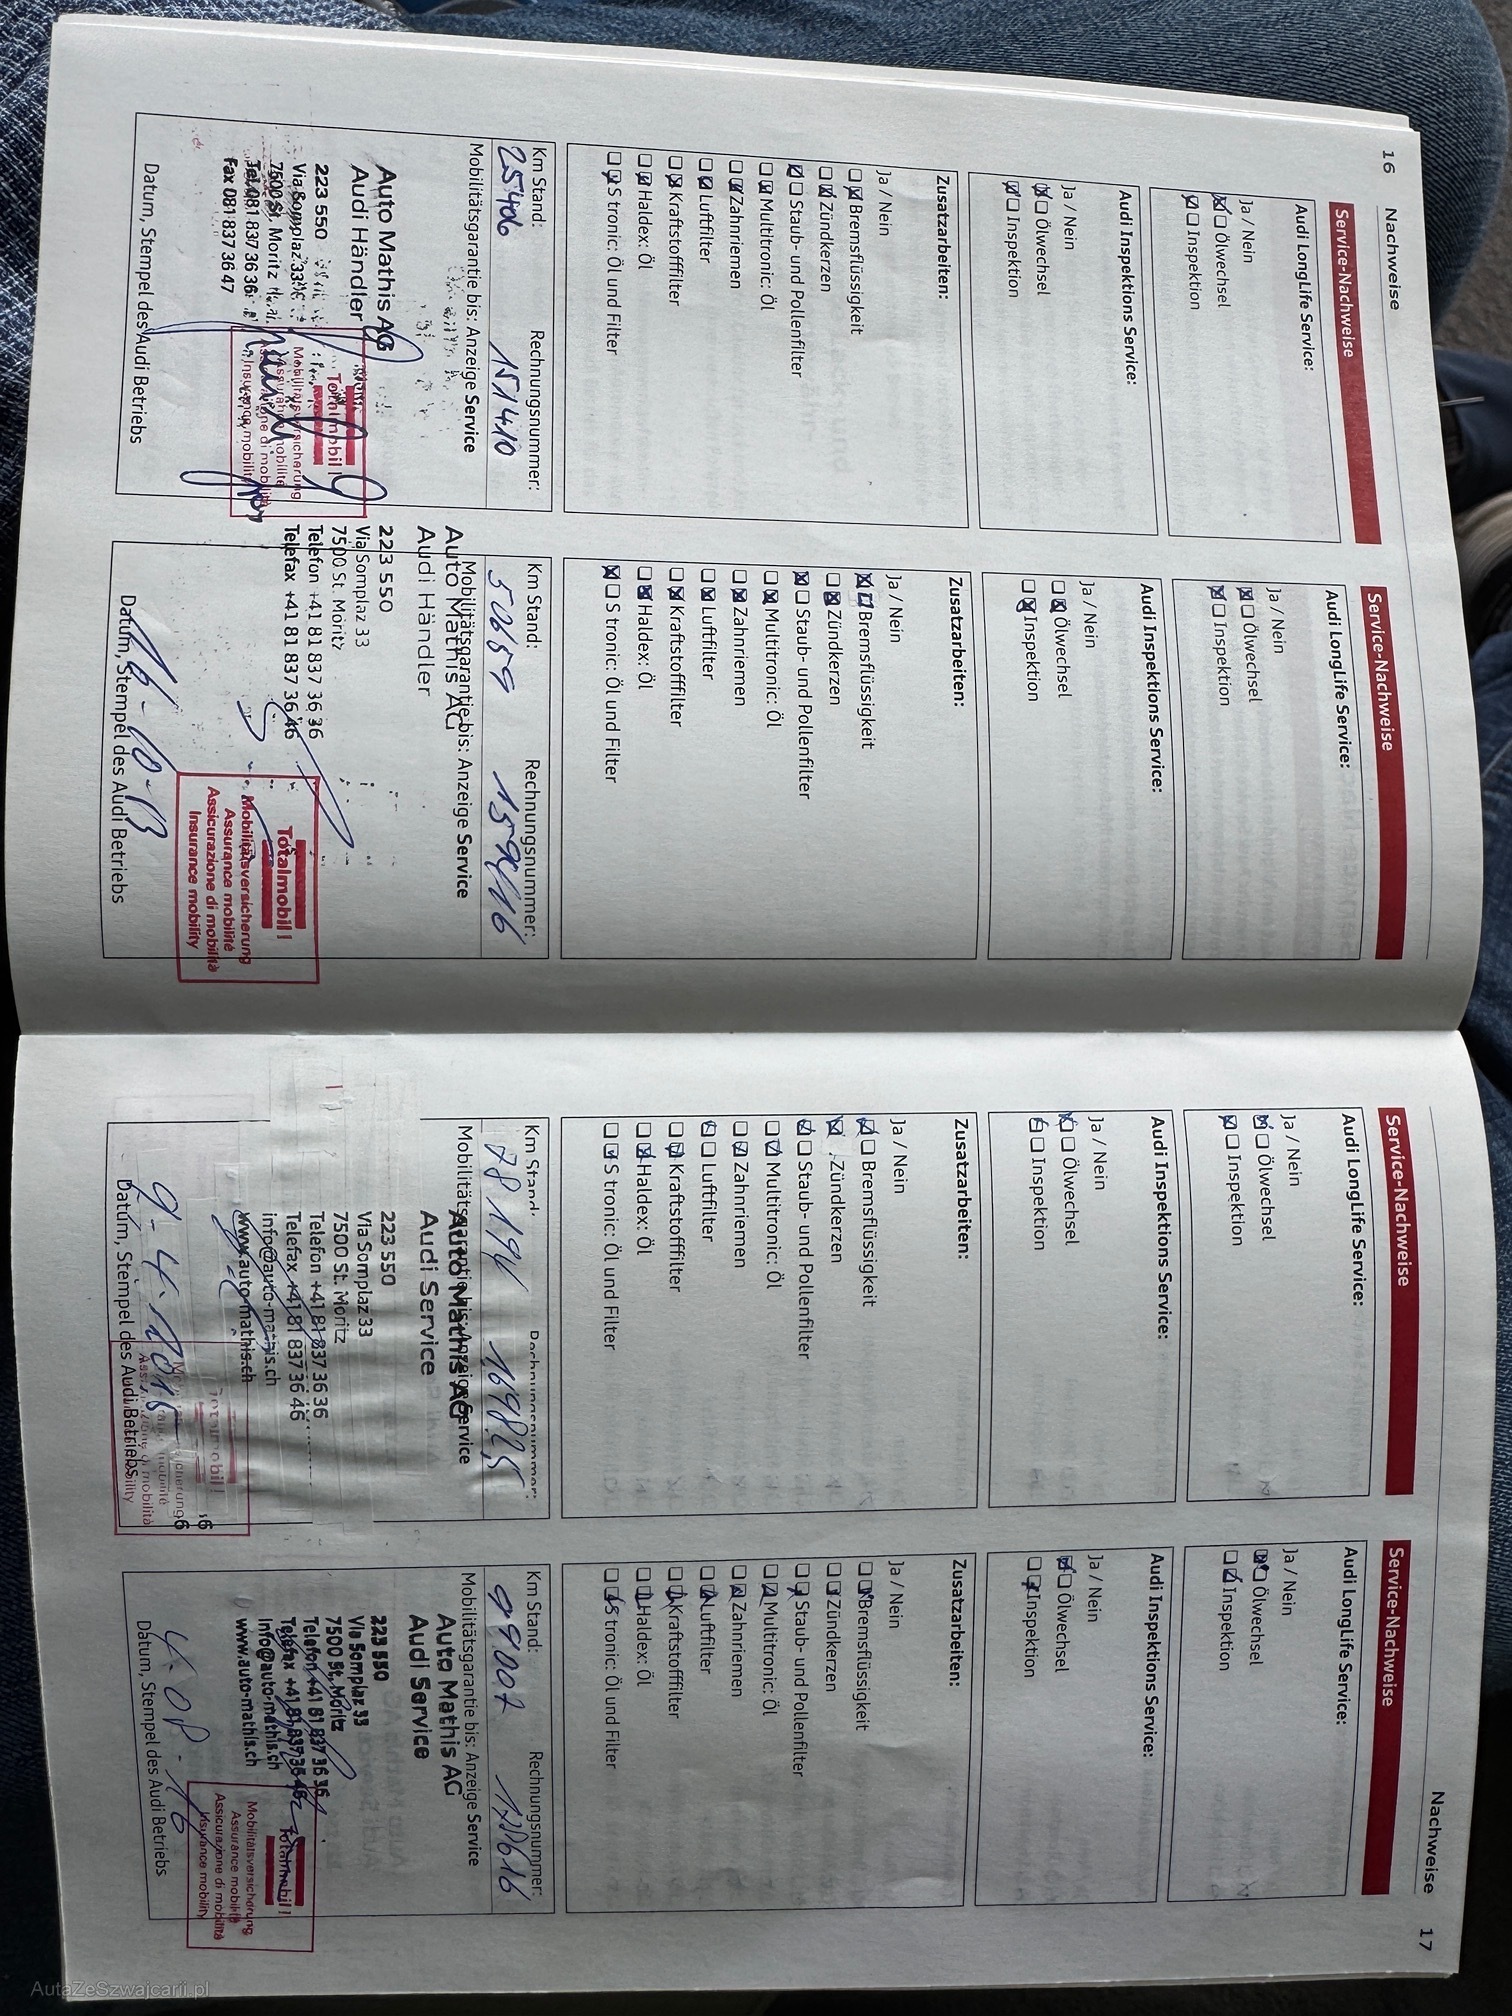 16 Nachweise
Service-Nachweise
Audi LongLife Service:
Ja / Nein
Ölwechsel
Inspektion
Audi Inspektions Service:
Ja / Nein
Ölwechsel
Inspektion
Zusatzarbeiten:
Ja / Nein
Bremsflüssigkeit
Zündkerzen
Staub- und Pollenfilter
Multitronic: Öl
Zahnriemen
Luftfilter
Kraftstofffilter
Haldex: Öl
S tronic: Öl und Filter
Km Stand: Rechnungsnummer:
25406 151410
Mobilitätsgarantie bis: Anzeige Service
Auto Mathis AG
Audi Händler
223 550
Via Somplaz 33
7500 St. Moritz
Tel. 081 837 36 36
Fax 081 837 36 47
Totalmobil!
Mobilitätsversicherung
Assurance mobilité
Assicurazione di mobilità
Insurance mobility
Datum, Stempel des Audi Betriebs
Service-Nachweise
Audi LongLife Service:
Ja / Nein
Ölwechsel
Inspektion
Audi Inspektions Service:
Ja / Nein
Ölwechsel
Inspektion
Zusatzarbeiten:
Ja / Nein
Bremsflüssigkeit
Zündkerzen
Staub- und Pollenfilter
Multitronic: Öl
Zahnriemen
Luftfilter
Kraftstofffilter
Haldex: Öl
S tronic: Öl und Filter
Km Stand: Rechnungsnummer:
Mobilitätsgarantie bis: Anzeige Service
Auto Mathis AG
Audi Händler
223 550
Via Somplaz 33
7500 St. Moritz
Telefon +41 81 837 36 36
Telefax +41 81 837 36 46
Totalmobil!
Mobilitätsversicherung
Assurance mobilité
Assicurazione di mobilità
Insurance mobility
16-10-13
Datum, Stempel des Audi Betriebs
Nachweise 17
Service-Nachweise
Audi LongLife Service:
Ja / Nein
Ölwechsel
Inspektion
Audi Inspektions Service:
Ja / Nein
Ölwechsel
Inspektion
Zusatzarbeiten:
Ja / Nein
Bremsflüssigkeit
Zündkerzen
Staub- und Pollenfilter
Multitronic: Öl
Zahnriemen
Luftfilter
Kraftstofffilter
Haldex: Öl
S tronic: Öl und Filter
Km Stand: Rechnungsnummer:
169825
Mobilitätsgarantie bis: Anzeige Service
Auto Mathis AG
Audi Service
223 550
Via Somplaz 33
7500 St. Moritz
Telefon +41 81 837 36 36
Telefax +41 81 837 36 46
info@auto-mathis.ch
www.auto-mathis.ch
Totalmobil!
9-4-2015
Datum, Stempel des Audi Betriebs
Service-Nachweise
Audi LongLife Service:
Ja / Nein
Ölwechsel
Inspektion
Audi Inspektions Service:
Ja / Nein
Ölwechsel
Inspektion
Zusatzarbeiten:
Ja / Nein
Bremsflüssigkeit
Zündkerzen
Staub- und Pollenfilter
Multitronic: Öl
Zahnriemen
Luftfilter
Kraftstofffilter
Haldex: Öl
S tronic: Öl und Filter
Km Stand: Rechnungsnummer:
99002
Mobilitätsgarantie bis: Anzeige Service
Auto Mathis AG
Audi Service
223 550
Via Somplaz 33
7500 St. Moritz
Telefon +41 81 837 36 36
Telefax +41 81 837 36 46
info@auto-mathis.ch
www.auto-mathis.ch
Totalmobil!
Mobilitätsversicherung
Assurance mobilité
Assicurazione di mobilità
Insurance mobility
4.08-16
Datum, Stempel des Audi Betriebs
AutaZeSzwajcarii.pl